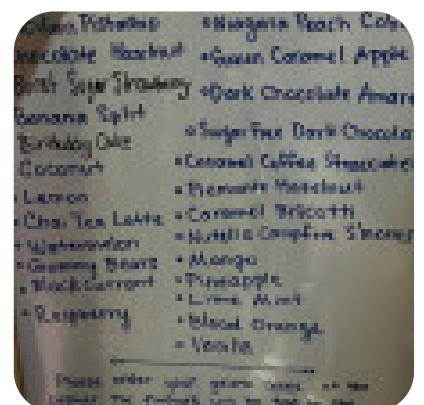 Pistachio
Chocolate Hazelnut
Burnt Sugar Strawberry
Banana Split
Birthday Cake
Coconut
• Lemon
• Chai Tea Latte
• Watermelon
• Gummy Bears
• Black Currant
• Raspberry
• Niagara Peach
• Queen Caramel Apple
• Dark Chocolate
• Sugar Free Dark Chocola
• Caramel Coffee
• Piemonte Hazelnut
• Caramel Biscotti
• Nutella Campfire S'mores
• Mango
• Pineapple
• Lime Mint
• Blood Orange
• Vanilla
Please order your